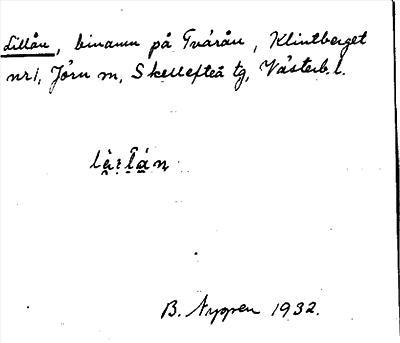 Lillån, binamn på Tvärån, Klintberget
nr 1, Jörn m, Skellefteå tg, Västerb. l.
B. Nygren 1932.